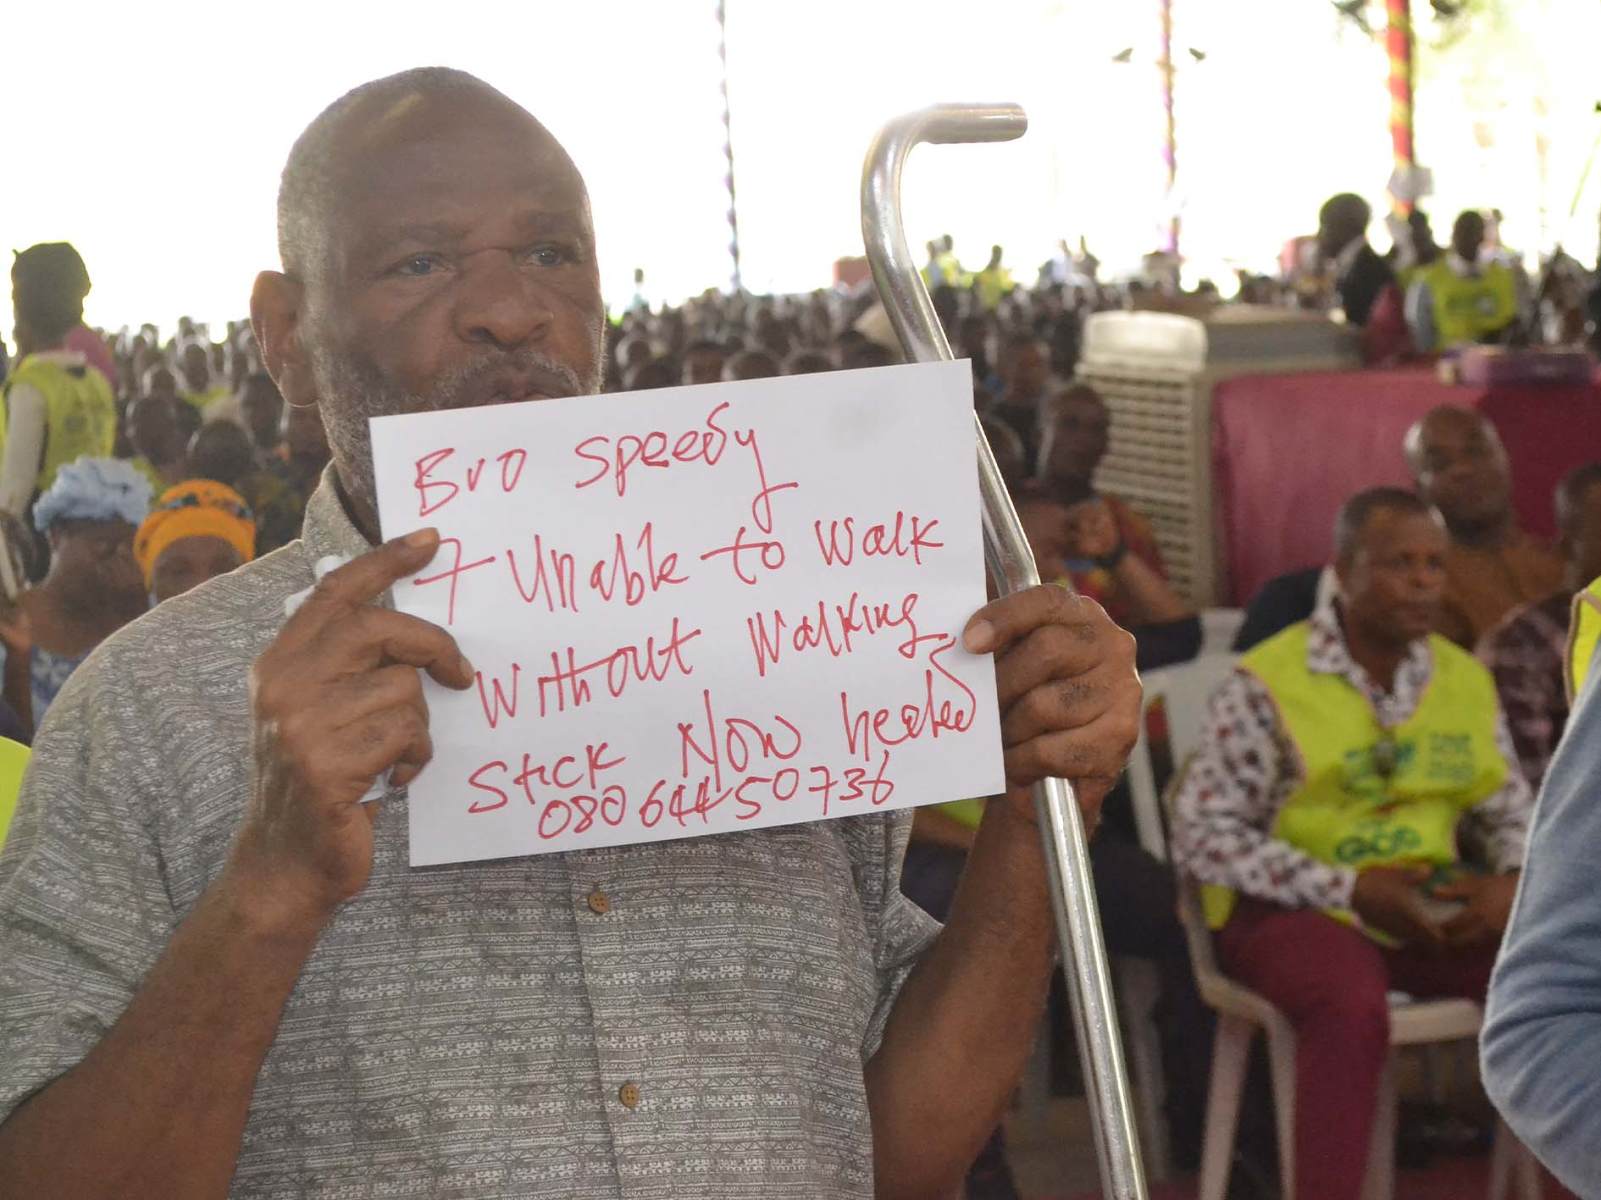 Bro Speedy
7 Unable to walk
Without Walking
Stick Now healed
08064450736
GCG